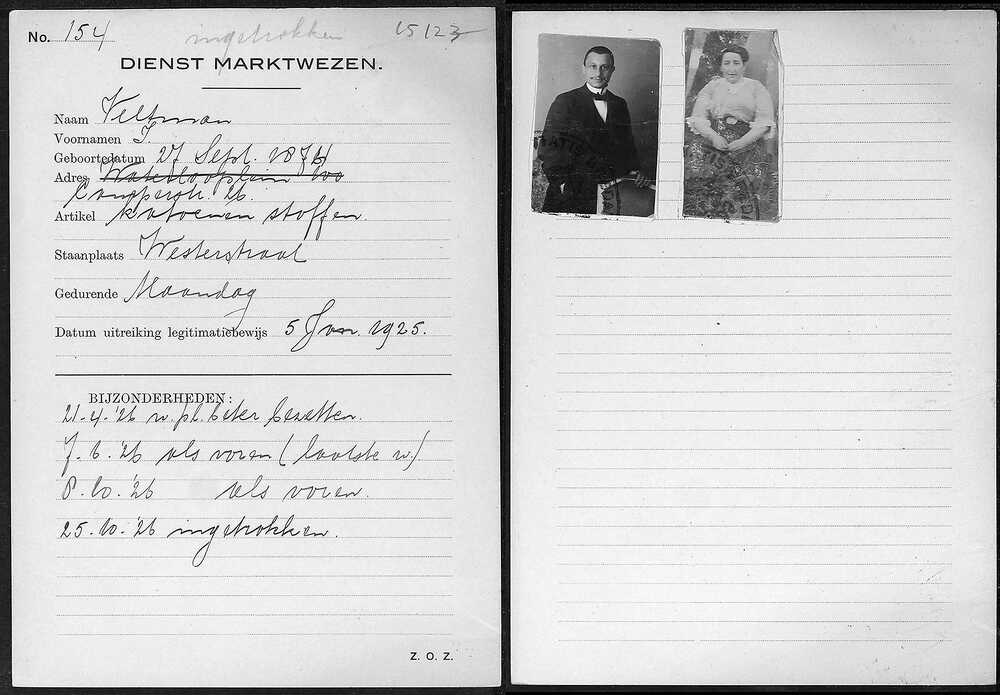 No. 154 ingetrokken 15123
DIENST MARKTWEZEN.
Naam Veltman
Voornamen I.
Geboortedatum 27 Sept. 1876
Adres Waterlooplein 100
Camperstr. 26.
Artikel katoenen stoffen.
Staanplaats Westerstraat
Gedurende Maandag
Datum uitreiking legitimatiebewijs 5 Jan. 1925.
BIJZONDERHEDEN:
21-4-'26 w. pl. beter bezetten.
7-6-'26 als voren (laatste w.)
8-10-'26 als voren.
25-10-'26 ingetrokken.
Z. O. Z.